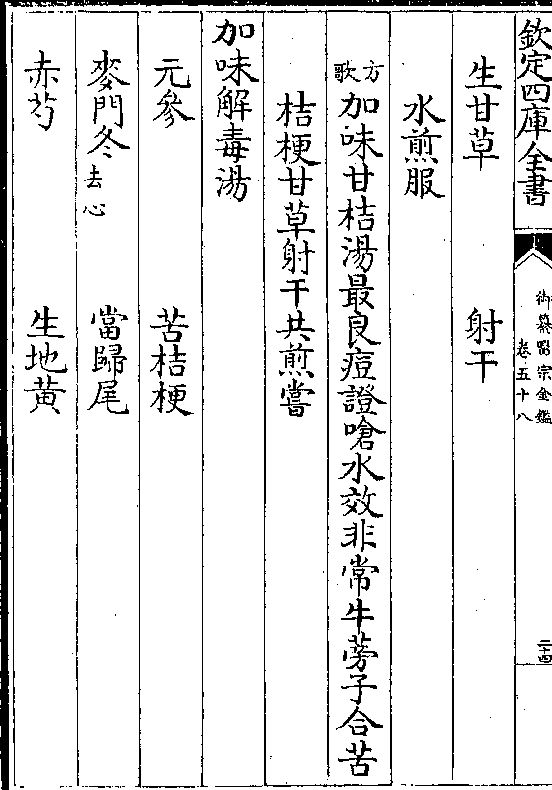 欽定四庫全書
御纂醫宗金鑑
卷五十八
二十四
生甘草　射干
水煎服
方歌　加味甘桔湯最良痘證嗆水效非常牛蒡子合苦
桔梗甘草射干共煎嘗
加味解毒湯
元參　苦桔梗
麥門冬去心　當歸尾
赤芍　生地黃